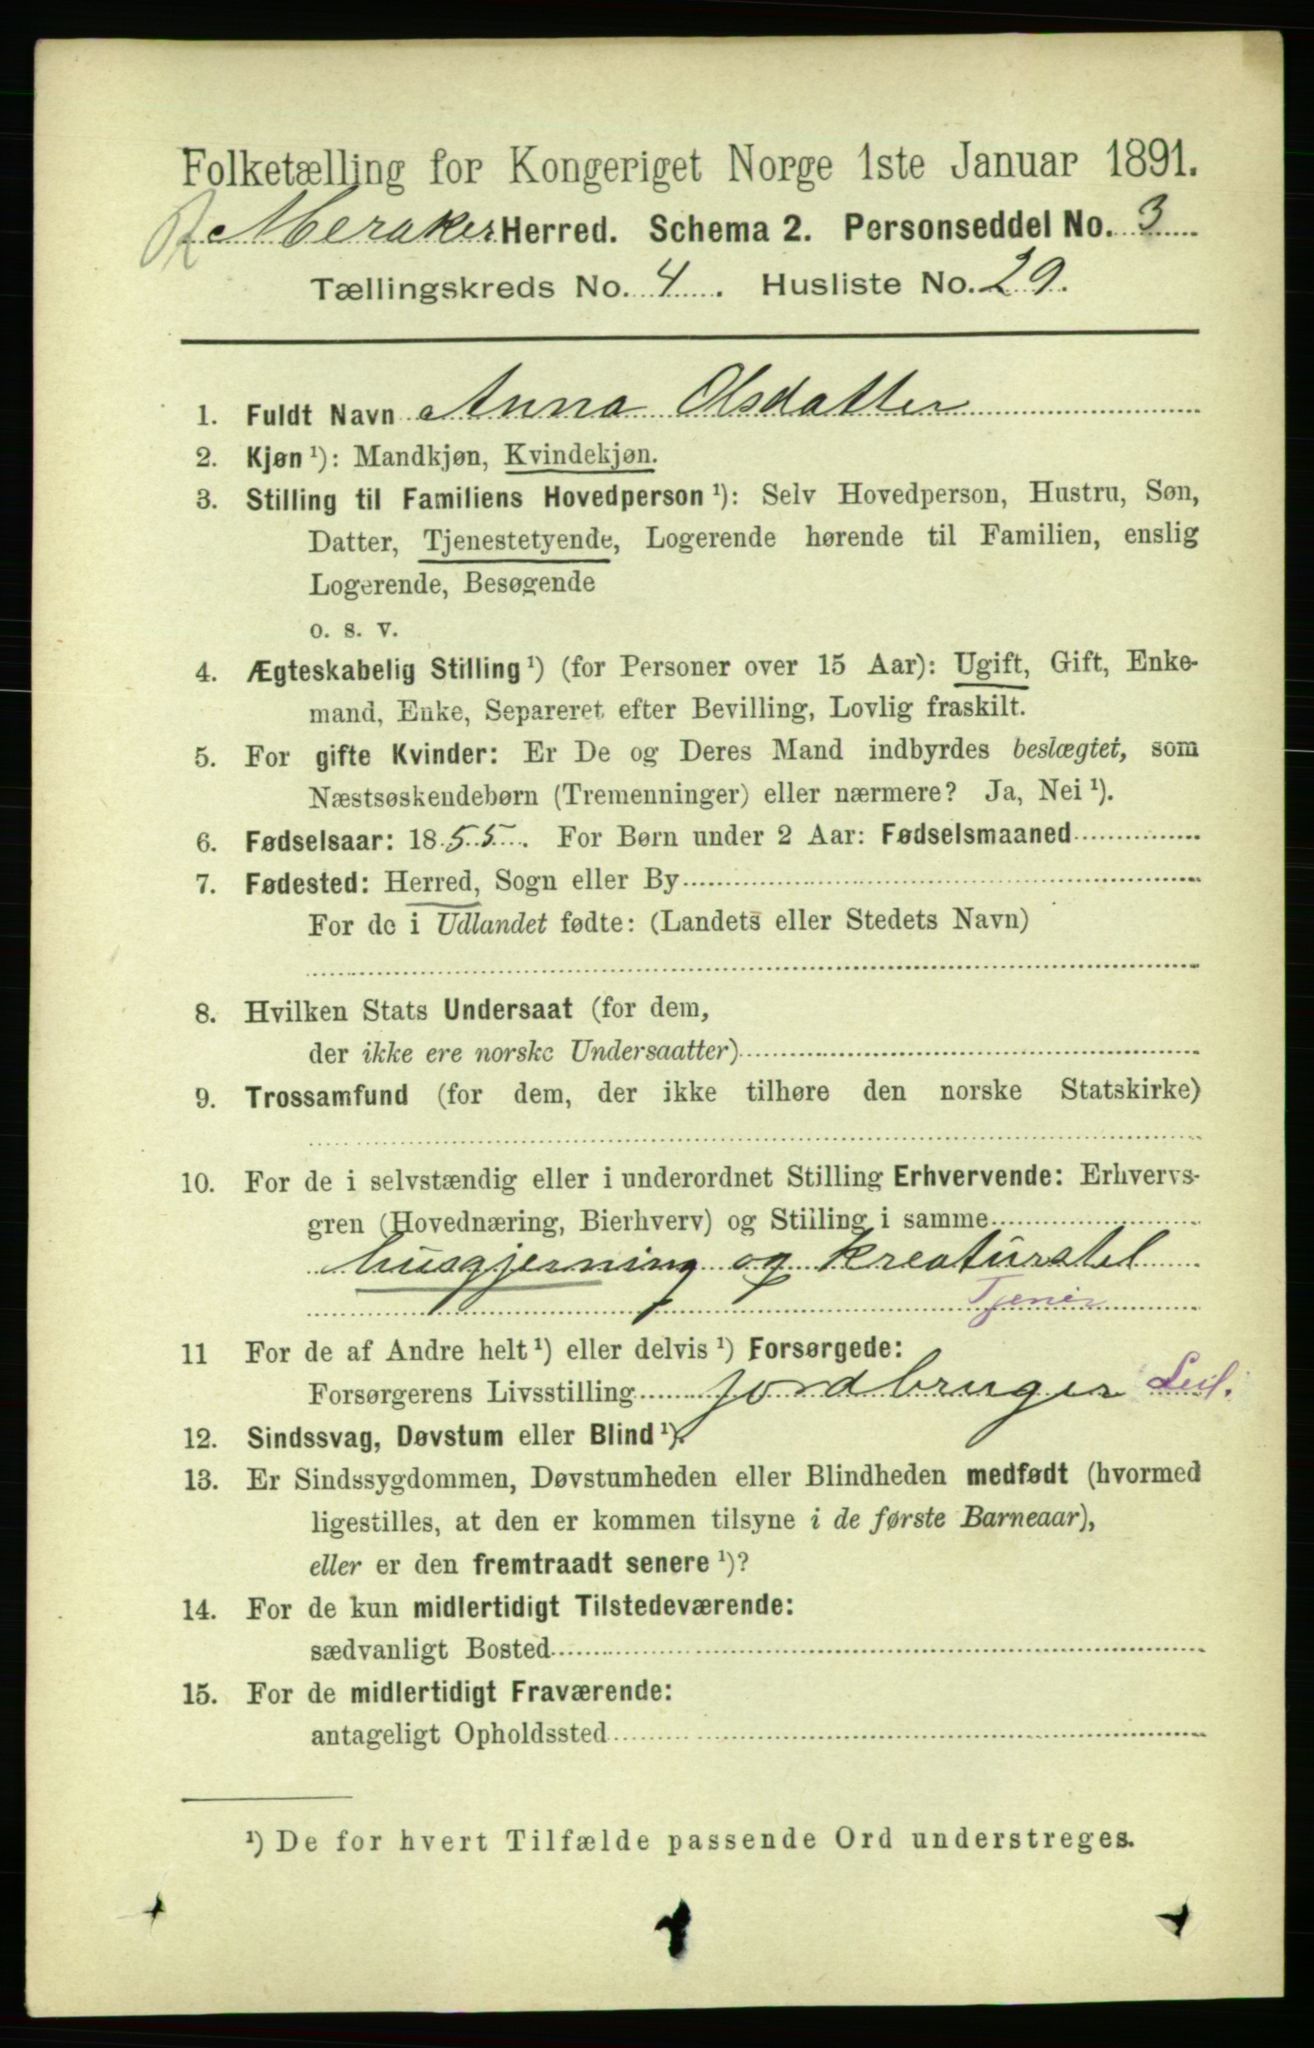 Folketælling for Kongeriget Norge 1ste Januar 1891.
Meraker Herred. Schema 2. Personseddel No. 3
Tællingskreds No. 4. Husliste No. 29.
1. Fuldt Navn Anna Olsdatter
2. Kjøn ¹): Mandkjøn, Kvindekjøn.
3. Stilling til Familiens Hovedperson ¹): Selv Hovedperson, Hustru, Søn,
Datter, Tjenestetyende, Logerende hørende til Familien, enslig
Logerende, Besøgende
o. s. v.
4. Ægteskabelig Stilling ¹) (for Personer over 15 Aar): Ugift, Gift, Enke-
mand, Enke, Separeret efter Bevilling, Lovlig fraskilt.
5. For gifte Kvinder: Er De og Deres Mand indbyrdes beslægtet, som
Næstsøskendebørn (Tremenninger) eller nærmere? Ja, Nei ¹).
6. Fødselsaar: 1855. For Børn under 2 Aar: Fødselsmaaned
7. Fødested: Herred, Sogn eller By
For de i Udlandet fødte: (Landets eller Stedets Navn)
8. Hvilken Stats Undersaat (for dem,
der ikke ere norske Undersaatter)
9. Trossamfund (for dem, der ikke tilhøre den norske Statskirke)
10. For de i selvstændig eller i underordnet Stilling Erhvervende: Erhvervs-
gren (Hovednæring, Bierhverv) og Stilling i samme
husgjerning og kreaturstel
Tjener
11 For de af Andre helt ¹) eller delvis ¹) Forsørgede:
Forsørgerens Livsstilling jordbruger Leil.
12. Sindssvag, Døvstum eller Blind ¹).
13. Er Sindssygdommen, Døvstumheden eller Blindheden medfødt (hvormed
ligestilles, at den er kommen tilsyne i de første Barneaar),
eller er den fremtraadt senere ¹)?
14. For de kun midlertidigt Tilstedeværende:
sædvanligt Bosted
15. For de midlertidigt Fraværende:
antageligt Opholdssted
¹) De for hvert Tilfælde passende Ord understreges.